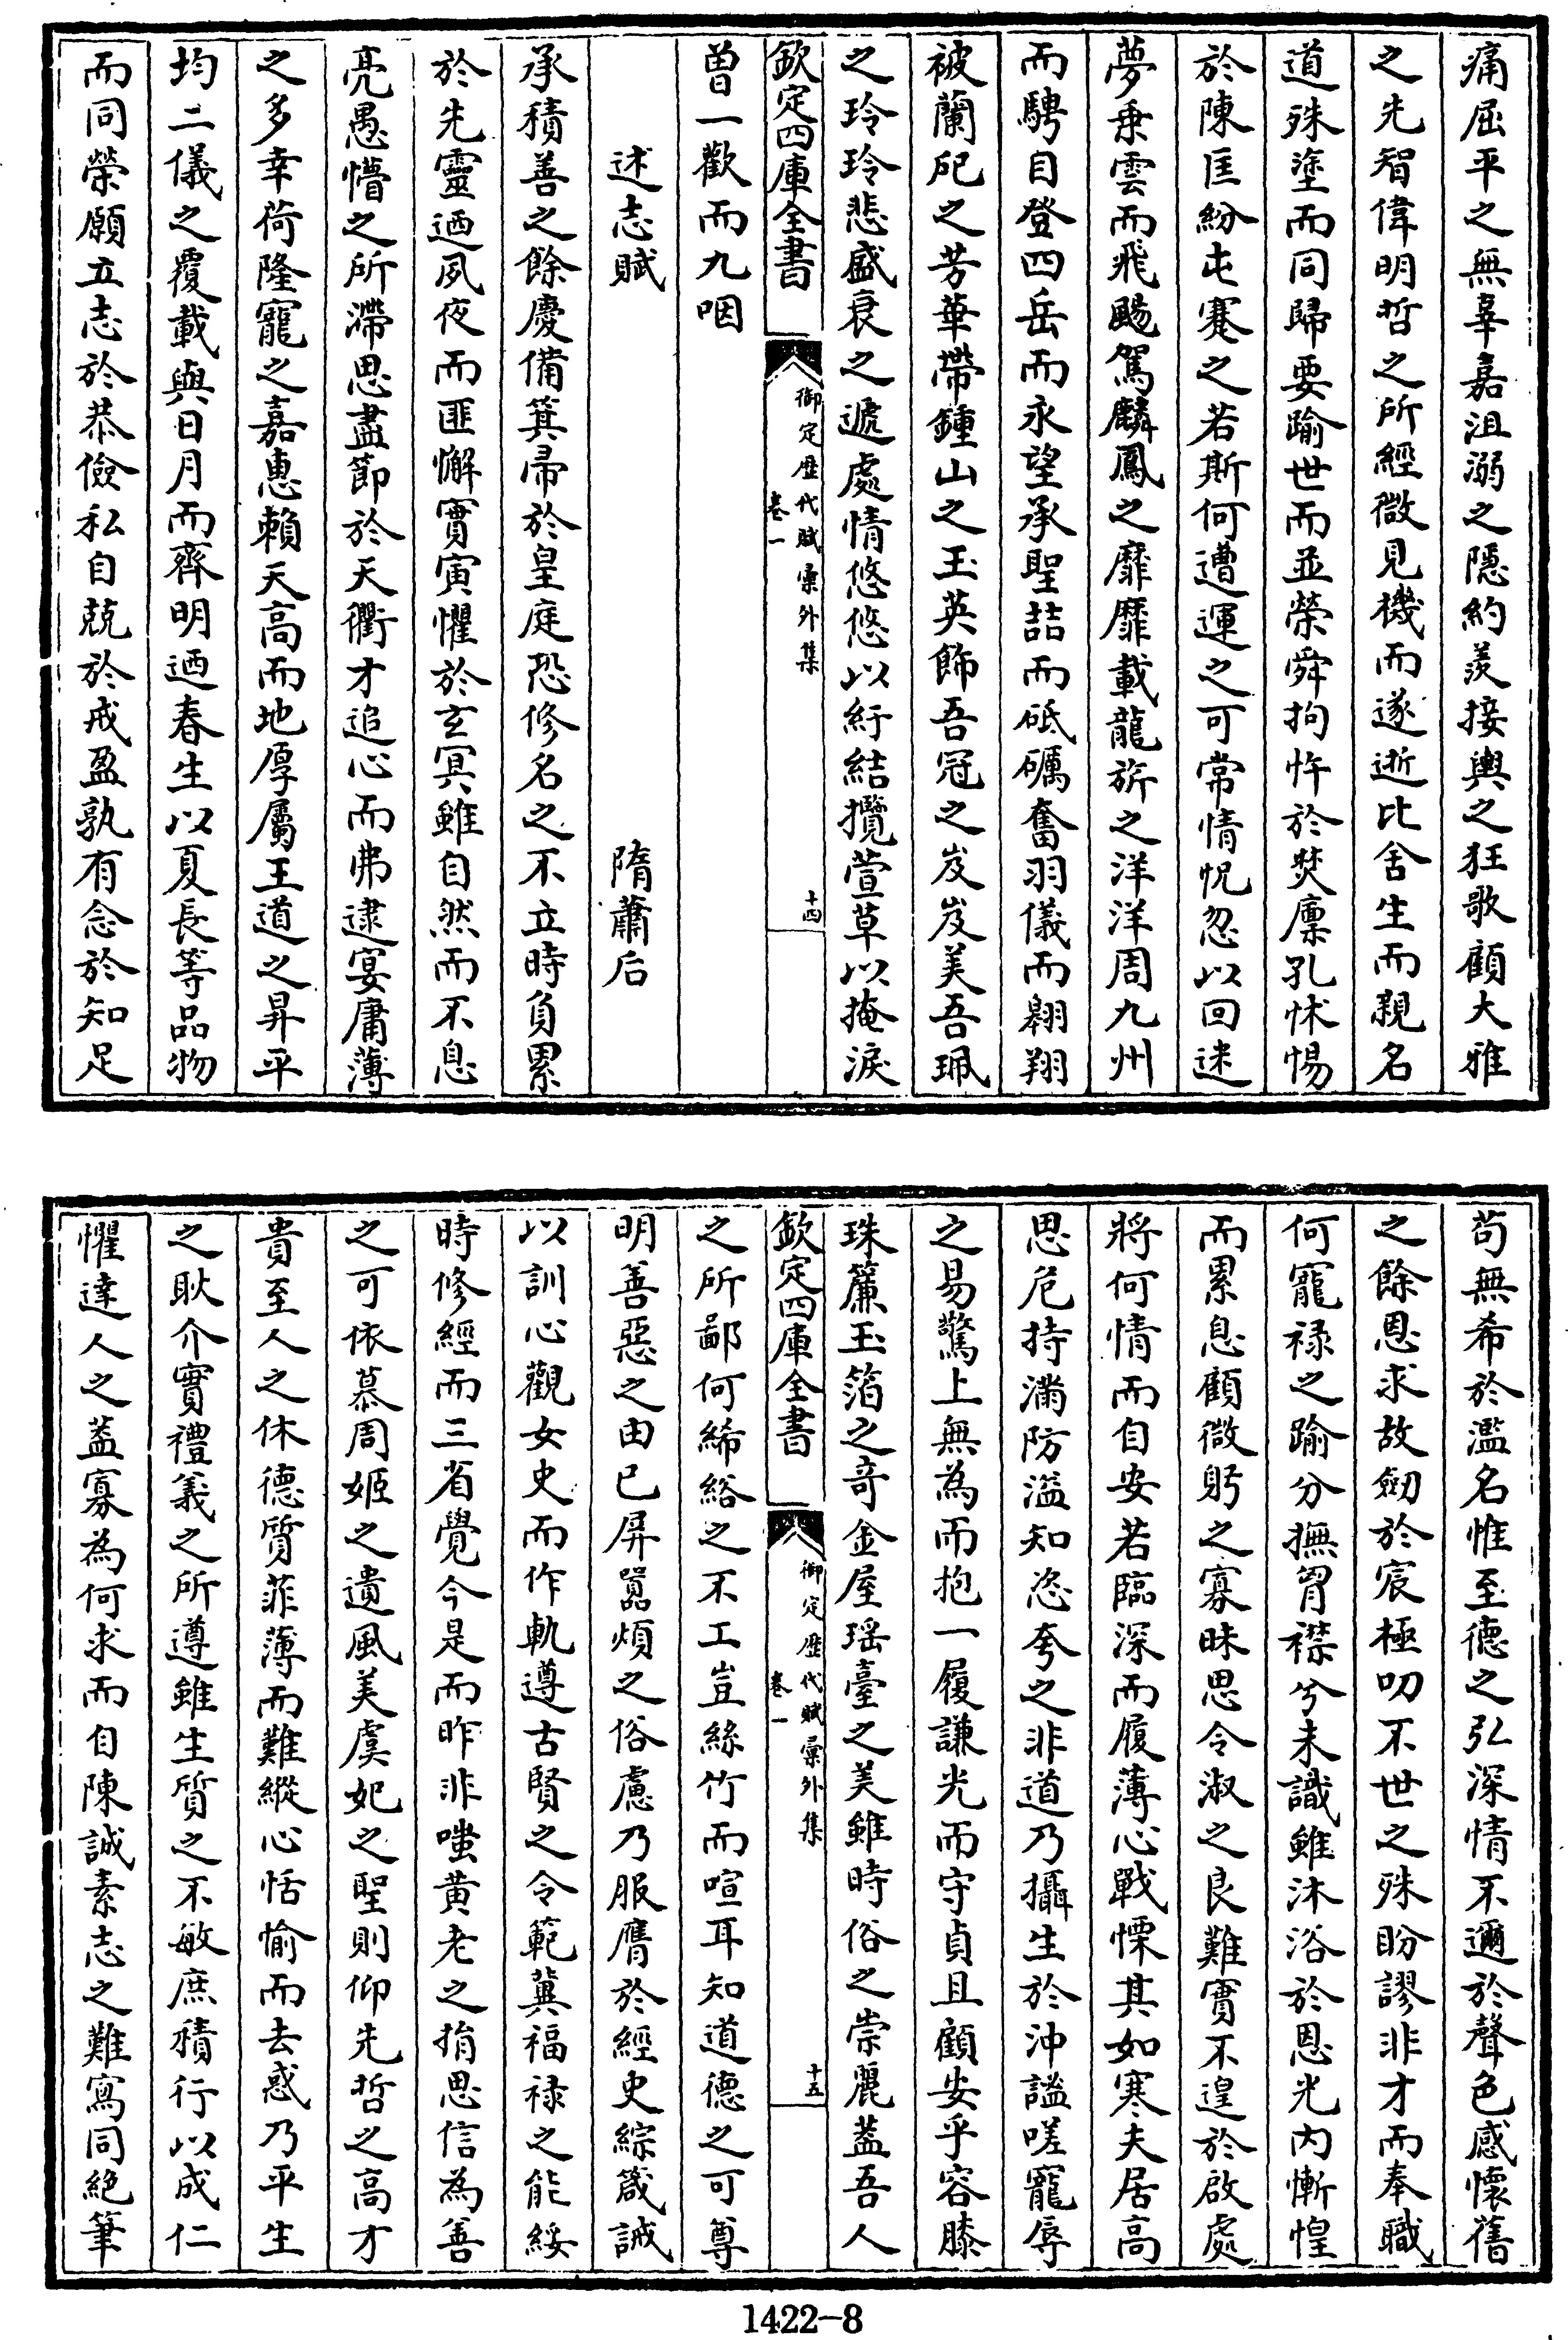 痛屈平之無辜嘉沮溺之隱約羨接輿之狂歌顧大雅
之先智偉明哲之所經微見機而遂逝比舍生而親名
道殊塗而同歸要踰世而並榮舜拘忤於焚廩孔怵惕
於陳匡紛屯蹇之若斯何遭運之可常情怳忽以回迷
夢乗雲而飛颺駕麟鳳之靡靡載龍旂之洋洋周九州
而騁目登四岳而永望承聖喆而砥礪奮羽儀而翱翔
被蘭𦬊之芳華帶鍾山之玉英飾吾冠之岌岌美吾珮
之玲玲悲盛衰之遞處情悠悠以紆結攬萱草以掩淚
欽定四庫全書
御定歷代賦彙外集
卷一
十四
曽一歡而九咽
述志賦
隋蕭后
承積善之餘慶備箕帚於皇庭恐修名之不立時負累
於先靈迺夙夜而匪懈實寅懼於玄冥雖自然而不息
亮愚懵之所滯思盡節於天衢才追心而弗逮寔庸薄
之多幸荷隆寵之嘉惠賴天高而地厚屬王道之昇平
均二儀之覆載與日月而齊明迺春生以夏長等品物
而同榮願立志於恭儉私自兢於戒盈孰有念於知足
苟無希於濫名惟至德之弘深情不邇於聲色感懷舊
之餘恩求故劒於宸極叨不世之殊盼謬非才而奉職
何寵祿之踰分撫胷襟兮未識雖沐浴於恩光内慚惶
而累息顧微躬之寡昧思令淑之良難實不遑於啟處
將何情而自安若臨深而履薄心戰慄其如寒夫居高
思危持滿防溢知恣夸之非道乃攝生於沖謐嗟寵辱
之易驚上無為而抱一履謙光而守貞且願安乎容膝
珠簾玉箔之奇金屋瑶臺之美雖時俗之崇麗葢吾人
欽定四庫全書
御定歷代賦彙外集
卷一
十五
之所鄙何絺綌之不工豈絲竹而喧耳知道德之可尊
明善惡之由已屏嚚煩之俗慮乃服膺於經史綜箴誡
以訓心觀女史而作軌遵古賢之令範冀福祿之能綏
時修經而三省覺今是而昨非嗤黄老之捐思信為善
之可依慕周姬之遺風美虞妃之聖則仰先哲之高才
貴至人之休德質菲薄而難縱心恬愉而去惑乃平生
之耿介實禮義之所遵雖生質之不敏庶積行以成仁
懼達人之葢寡為何求而自陳誠素志之難寫同絶筆
1422-8